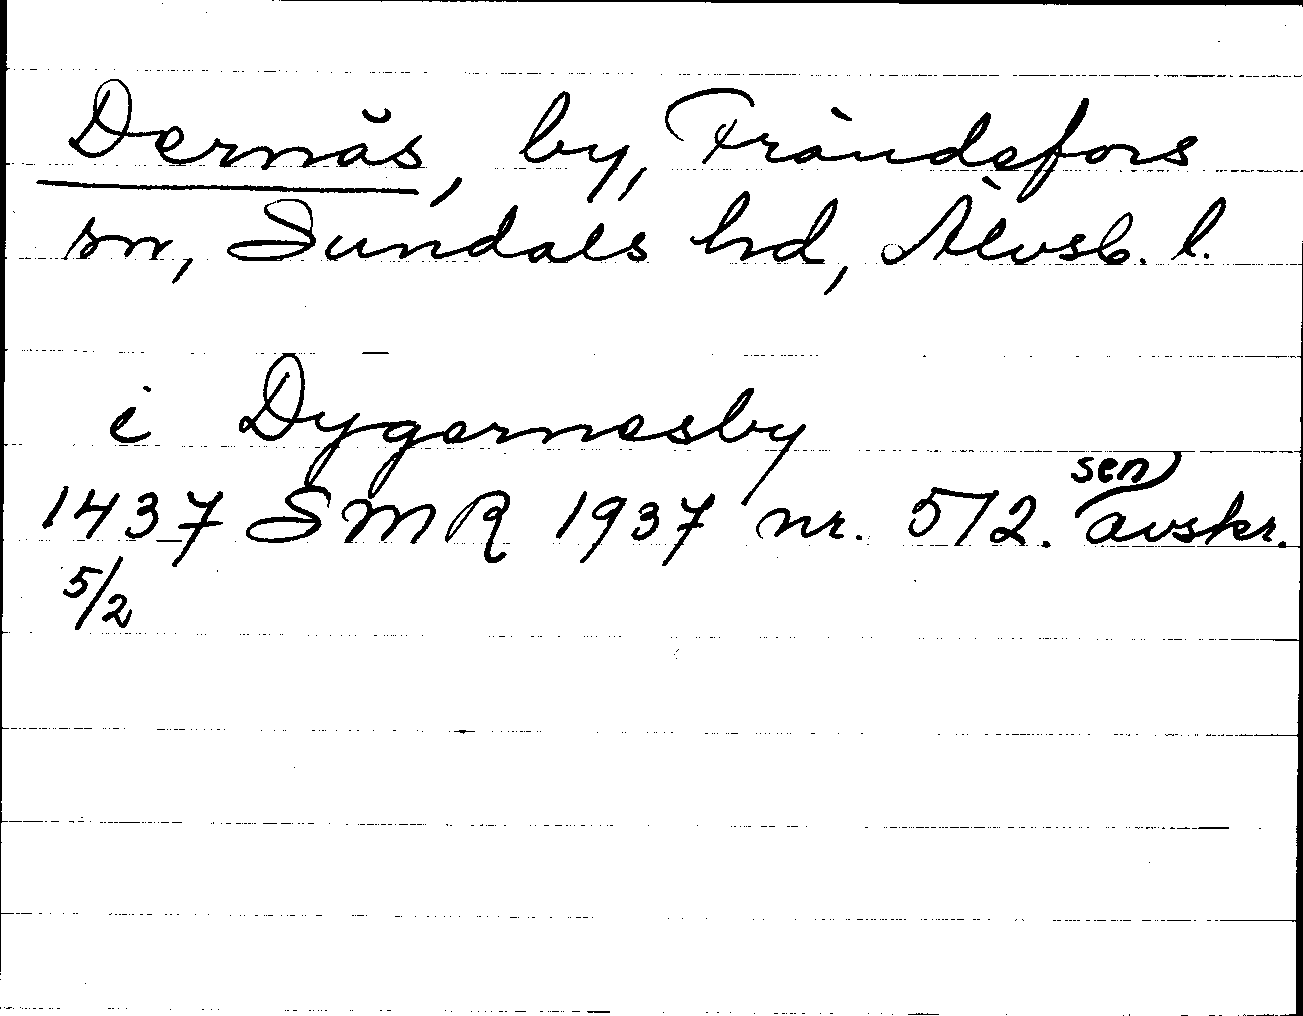 Dernäs, by, Frändefors
sn, Sundals hd, Älvsb. l.
i Dygernesby
sen
1437 SMR 1937 nr. 572. avskr.
5/2